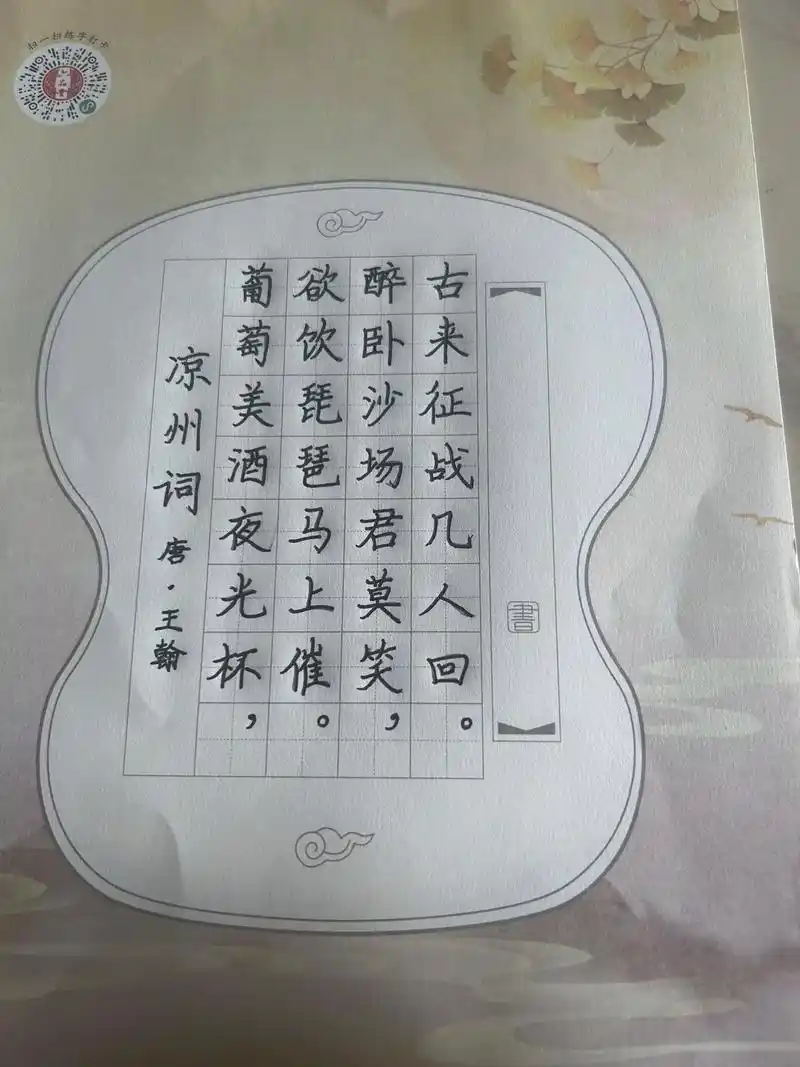 扫一扫练字打卡
凉州词 唐·王翰
葡萄美酒夜光杯，
欲饮琵琶马上催。
醉卧沙场君莫笑，
古来征战几人回。
書